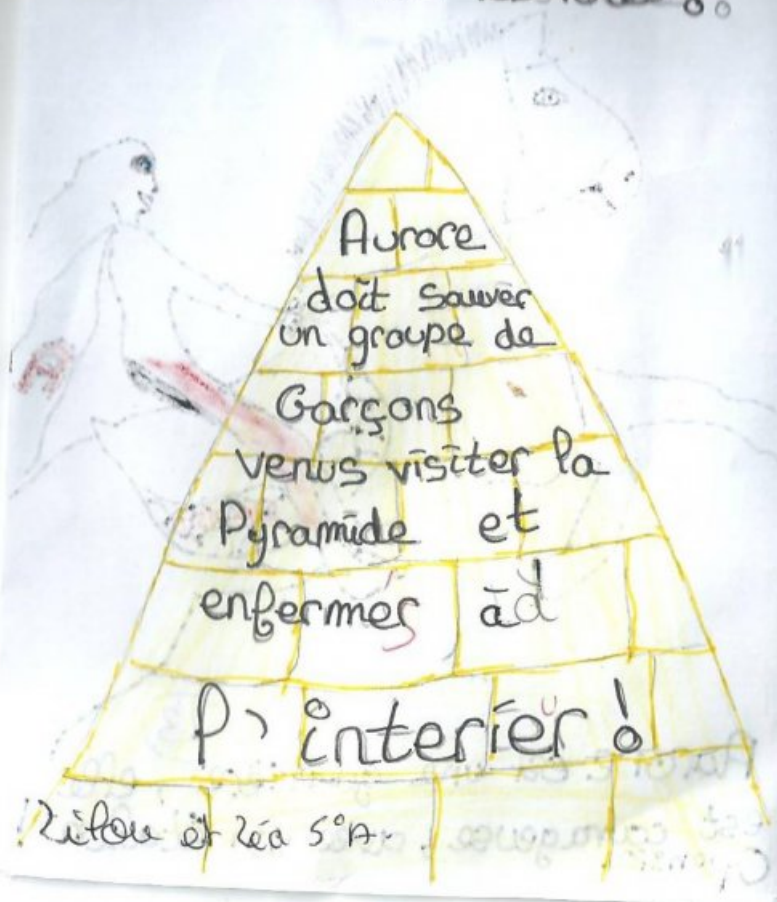 Aurore
doit sauver
un groupe de
Garçons
venus visiter la
Pyramide et
enfermés à
l'interieur !
et Léa 5°A.